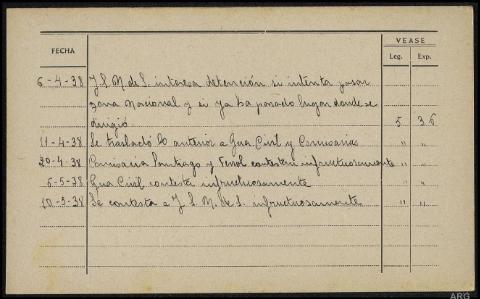 VEASE
FECHA Leg. Exp.
6-4-38 J.S.M. de S. interesa detención si intenta pasar
zona nacional y si ya ha pasado lugar donde se
dirigió 5 36
11-4-38 Se trasladó lo anterior a Gua Civil y Comisaria " "
20-4-38 Comisaria Santiago y Ferrol contestan infructuosamente " "
6-5-38 Gua Civil contesta infructuosamente " "
10-5-38 Se contesta a J.S.M. de S. infructuosamente " "
ARG